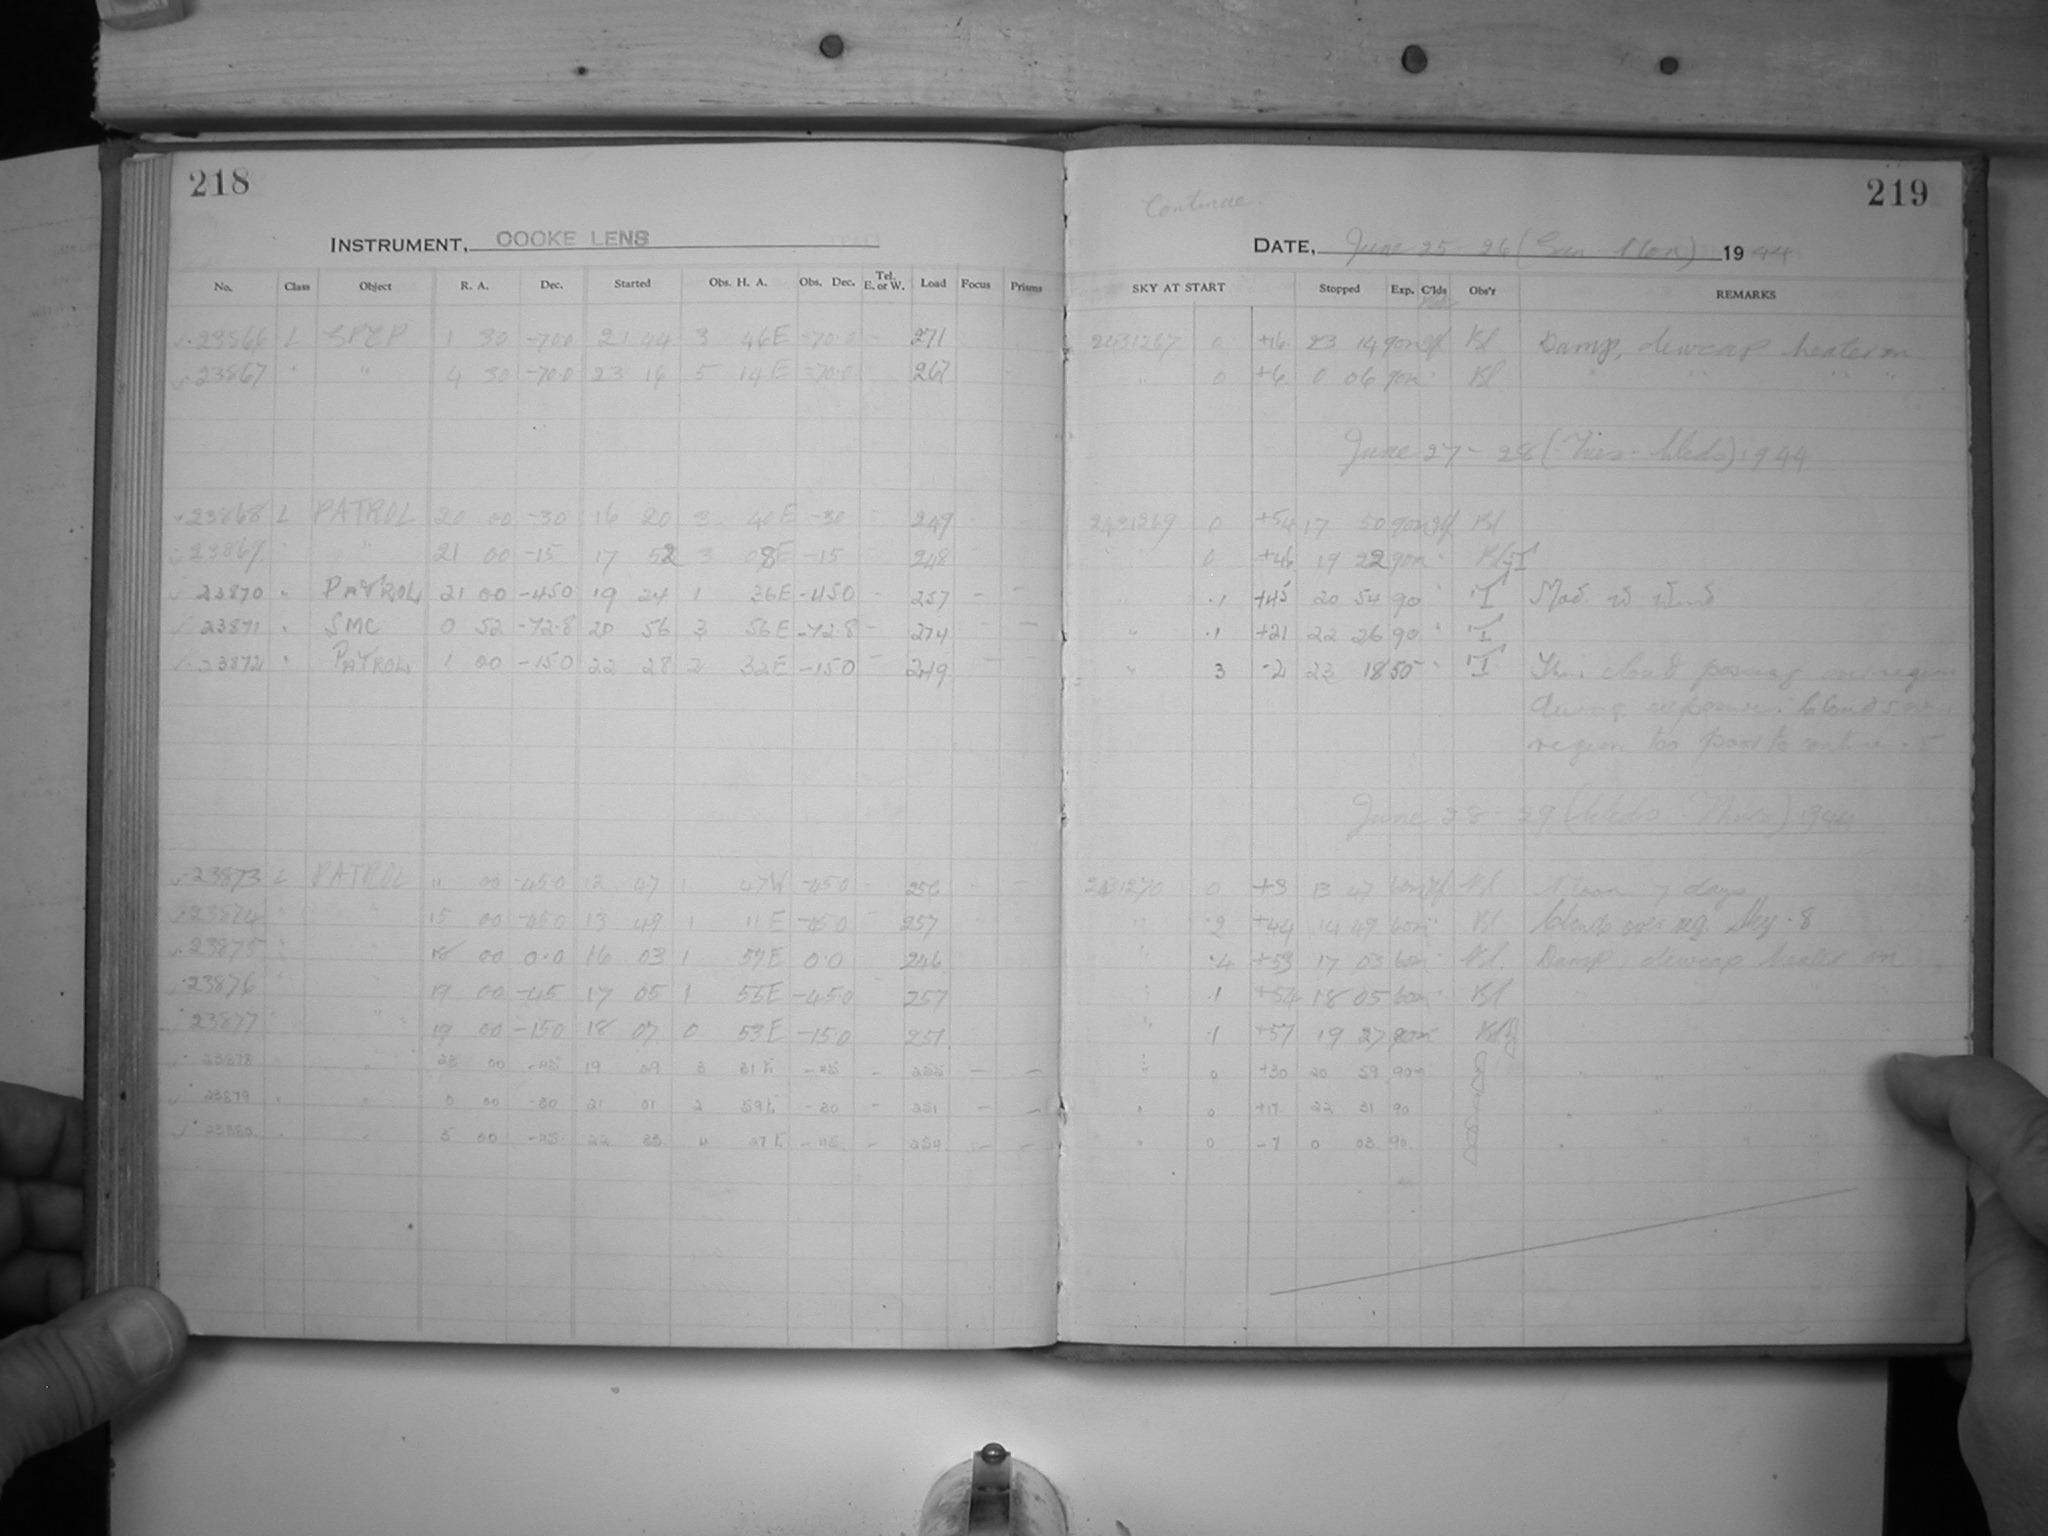 218
INSTRUMENT, COOKE LENS
No. Class Object R. A. Dec. Started Obs. H. A. Obs. Dec. Tel. E. or W. Load Focus Prisms
23866 L SPCP 1 30 -70.0 21 44 3 46E -70.0 - 271
23867 " " 4 30 -70.0 23 16 5 14E -70.0 267
23868 L PATROL 20 00 -30 16 20 3 40E -30 - 249
23869 " " 21 00 -15 17 52 3 08E -15 248
23870 " PATROL 21 00 -45.0 19 24 1 36E -45.0 - 257 - -
23871 " SMC 0 52 -72.8 20 56 3 56E -72.8 - 274 - -
23872 " PATROL 1 00 -15.0 22 28 2 32E -15.0 - 249 - -
23873 L PATROL 11 00 -45.0 12 47 1 47W -45.0 - 256
23874 " " 15 00 -45.0 13 49 1 11E -45.0 - 257
23875 " " 18 00 0.0 16 03 1 57E 0.0 246
23876 " " 19 00 -45 17 05 1 55E -45.0 257
23877 " " 19 00 -15.0 18 07 0 53E -15.0 251
23878 " " 23 00 -45 19 29 3 31E -45 - 255 - -
23879 " " 0 00 -30 21 01 2 59E -30 - 251 - -
23880 " " 3 00 -45 22 33 4 27E -45 - 254 - -
219
Continue.
DATE, June 25 - 26 (Sun - Mon) 1944
SKY AT START Stopped Exp. C'lds Obs'r REMARKS
2431267 0 +16 23 14 90m Bl Damp, dewcap heater on
" 0 +6 0 06 90m " Bl " " " "
June 27 - 28 (Tues - Weds) 1944
2431269 0 +54 17 50 90m Bl
0 +46 19 22 90m " Bl
" .1 +45 20 54 90 " Mod. W Wind
" .1 +21 22 26 90 "
" 3 -2 23 18 50 " Thin cloud passing over region
during exposure. Clouds over
region too poor to continue. 5
June 28 - 29 (Weds - Thurs) 1944
2431270 0 +3 13 47 60m Bl Moon 7 days
" .2 +44 14 49 60m " Bl Clouds over reg. Sky .8
" .4 +53 17 03 60m " Bl. Damp, dewcap heater on
" .1 +54 18 05 60m " Bl
" .1 +57 19 27 80m
" 0 +30 20 59 90m " " " "
" 0 +17 22 31 90 " " " "
" 0 -7 0 03 90. " " " "